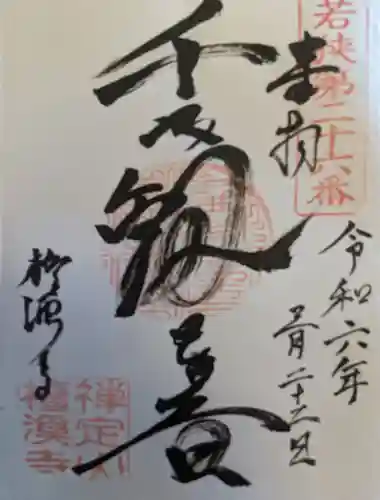 若狭第二十六番
奉拝
千手観世音
令和六年
月二十
檀溪寺
禅定山
檀溪寺